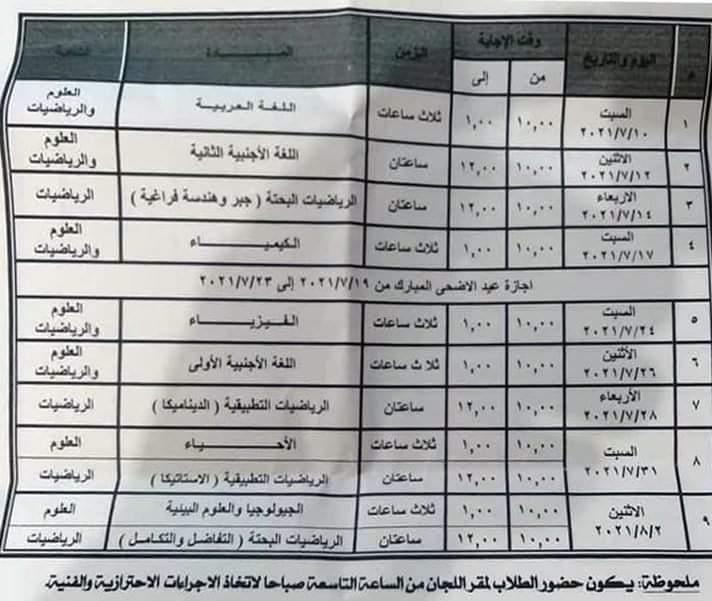 م اليوم والتاريخ وقت الإجابة الزمن المــــادة الشعبة
من إلى
١ السبت ٢٠٢١/٧/١٠ ١٠,٠٠ ١,٠٠ ثلاث ساعات اللغة العربية العلوم والرياضيات
٢ الاثنين ٢٠٢١/٧/١٢ ١٠,٠٠ ١٢,٠٠ ساعتان اللغة الأجنبية الثانية العلوم والرياضيات
٣ الاربعاء ٢٠٢١/٧/١٤ ١٠,٠٠ ١٢,٠٠ ساعتان الرياضيات البحتة ( جبر وهندسة فراغية ) الرياضيات
٤ السبت ٢٠٢١/٧/١٧ ١٠,٠٠ ١,٠٠ ثلاث ساعات الكيميـــاء العلوم والرياضيات
اجازة عيد الاضحى المبارك من ٢٠٢١/٧/١٩ إلى ٢٠٢١/٧/٢٣
٥ السبت ٢٠٢١/٧/٢٤ ١٠,٠٠ ١,٠٠ ثلاث ساعات الفيزيـــاء العلوم والرياضيات
٦ الأثنين ٢٠٢١/٧/٢٦ ١٠,٠٠ ١,٠٠ ثلاث ساعات اللغة الأجنبية الأولى العلوم والرياضيات
٧ الأربعاء ٢٠٢١/٧/٢٨ ١٠,٠٠ ١٢,٠٠ ساعتان الرياضيات التطبيقية ( الديناميكا ) الرياضيات
٨ السبت ٢٠٢١/٧/٣١ ١٠,٠٠ ١,٠٠ ثلاث ساعات الأحيـــاء العلوم
١٠,٠٠ ١٢,٠٠ ساعتان الرياضيات التطبيقية ( الاستاتيكا ) الرياضيات
٩ الاثنين ٢٠٢١/٨/٢ ١٠,٠٠ ١,٠٠ ثلاث ساعات الجيولوجيا والعلوم البيئية العلوم
١٠,٠٠ ١٢,٠٠ ساعتان الرياضيات البحتة ( التفاضل والتكامل ) الرياضيات
ملحوظة: يكون حضور الطلاب لمقر اللجان من الساعة التاسعة صباحا لاتخاذ الاجراءات الاحترازية والفنية.